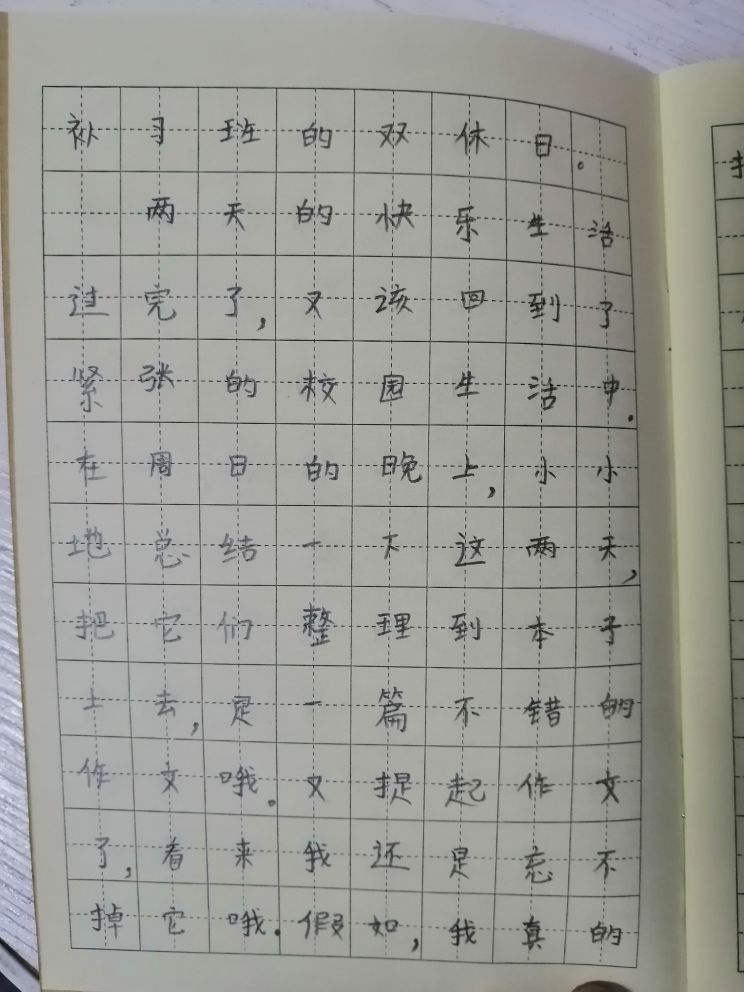 补习班的双休日。
两天的快乐生活
过完了,又该回到了
紧张的校园生活中.
在周日的晚上,小小
地总结一下这两天,
把它们整理到本子
上去,是一篇不错的
作文哦。又提起作文
了,看来我还是忘不
掉它哦.假如,我真的